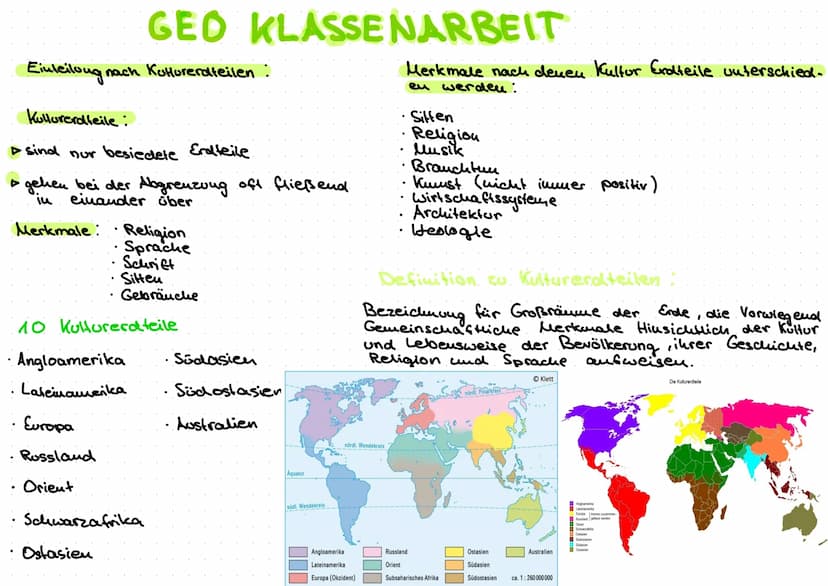 GEO KLASSENARBEIT
Einteilung nach Kulturerdteilen :
Kulturerdteile :
▷ sind nur besiedelte Erdteile
▷ gehen bei der Abgrenzung oft fließend
in einander über
Merkmale : · Religion
· Sprache
· Schrift
· Sitten
· Gebräuche
10 Kulturerdteile
· Angloamerika
· Lateinamerika
· Europa
· Russland
· Orient
· Schwarzafrika
· Ostasien
· Südasien
· Südostasien
· Australien
Merkmale nach denen Kultur Erdteile unterschied-
en werden :
· Sitten
· Religion
· Musik
· Brauchtum
· Kunst (nicht immer positiv)
· Wirtschaftssysteme
· Architektur
· Ideologie
Definition zu Kulturerdteilen :
Bezeichnung für Großräume der Erde, die Vorwiegend
Gemeinschaftliche Merkmale Hinsichtlich der Kultur
und Lebensweise der Bevölkerung, ihrer Geschichte,
Religion und Sprache aufweisen.
© Klett
nördl. Polarkreis
nördl. Wendekreis
Äquator
südl. Wendekreis
Angloamerika
Lateinamerika
Europa (Okzident)
Russland
Orient
Subsaharisches Afrika
Ostasien
Südasien
Südostasien
Australien
ca. 1 : 260 000 000
Die Kulturerdteile
Angloamerika
Lateinamerika
Europa
Russland
Orient